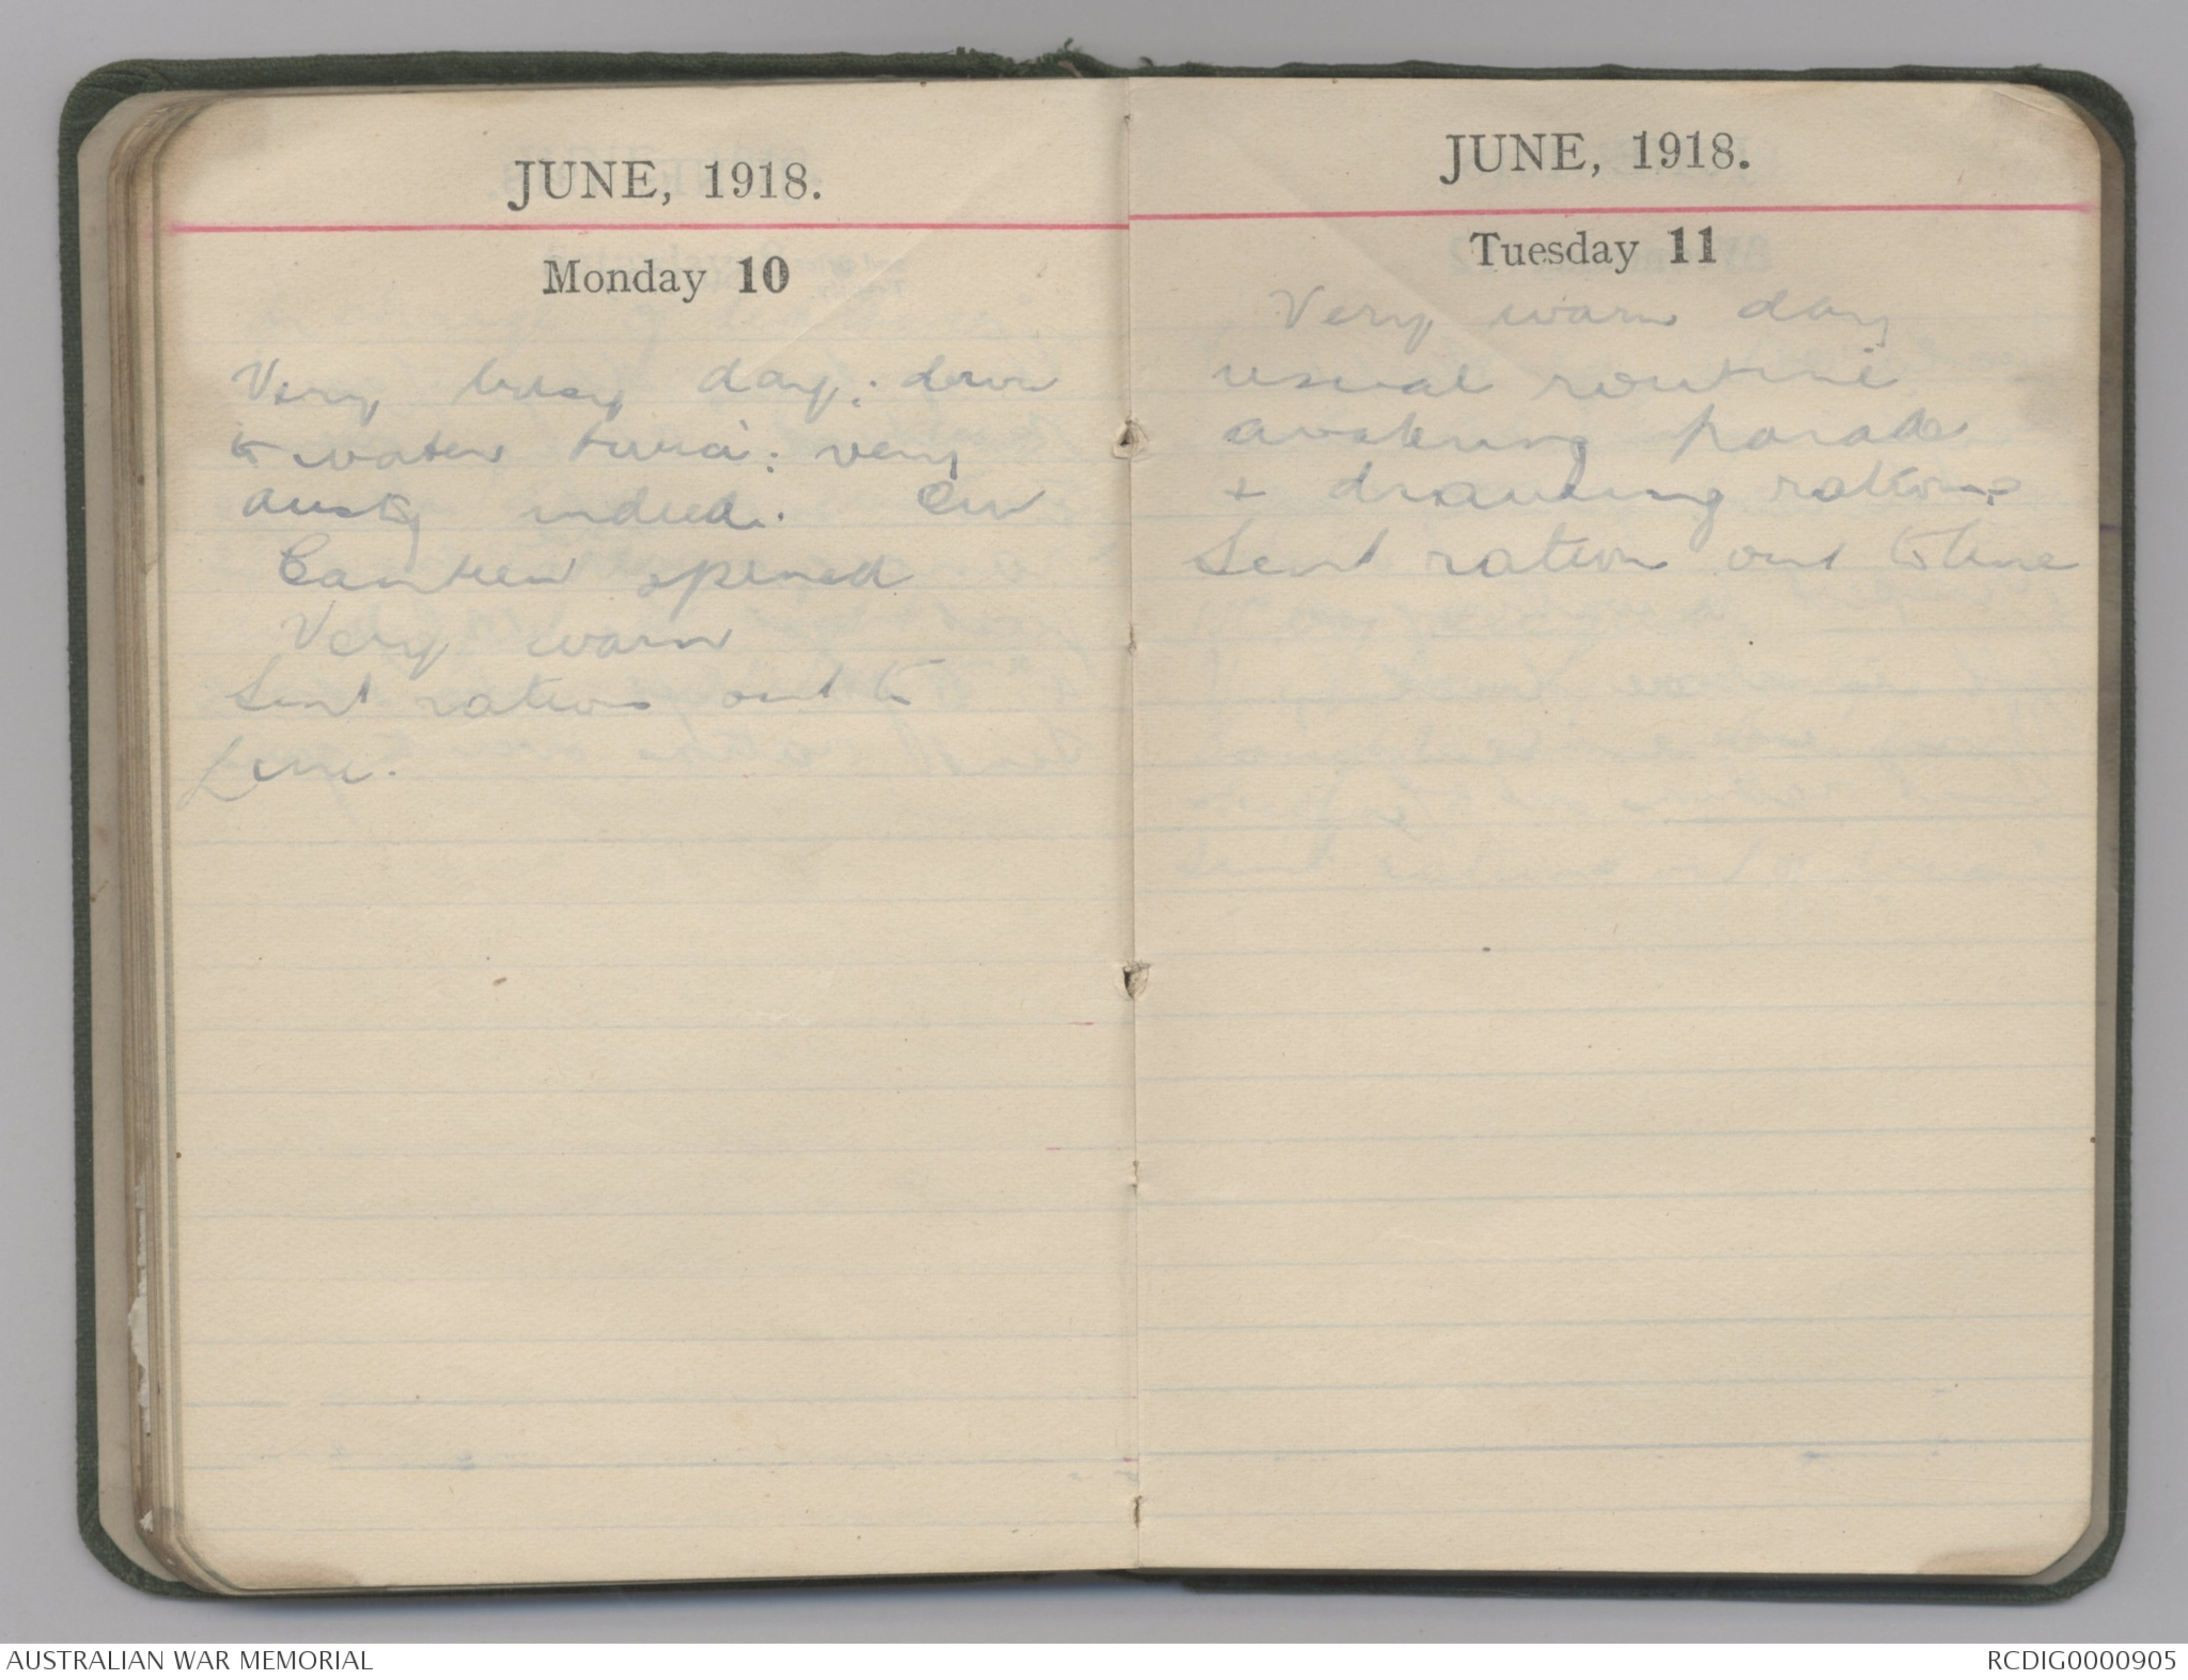 JUNE, 1918.
Monday 10
Very busy day: down
to water twice: very
dusty indeed. Our
Canteen opened
Very warm
Sent rations out to
Line.
JUNE, 1918.
Tuesday 11
Very warm day
usual routine
watering parade
+ drawing rations
Sent rations out to line
AUSTRALIAN WAR MEMORIAL
RCDIG0000905